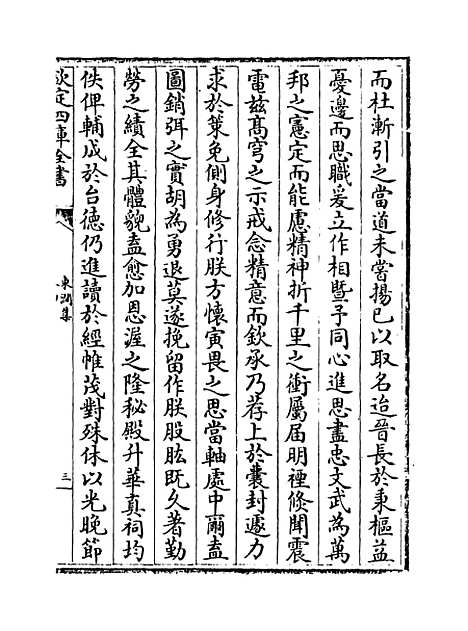 而杜漸引之當道未嘗揚己以取名迨晉長於東樞益
憂邊而思職爰立作相暨予同心進思盡忠文武為萬
邦之憲定而能慮精神折千里之衝屬届明禋倐聞震
電兹髙穹之示戒念精意而欽承乃荐上於囊封遽力
求於策免側身修行朕方懷寅畏之思當軸處中爾盍
圖銷弭之實胡為勇退莫遂挽留作朕股肱既久著勤
勞之績全其體貌盍愈加恩渥之隆秘殿升華真祠均
佚俾輔成於台徳仍進讀於經帷茂對殊休以光晚節
欽定四庫全書
東澗集
三